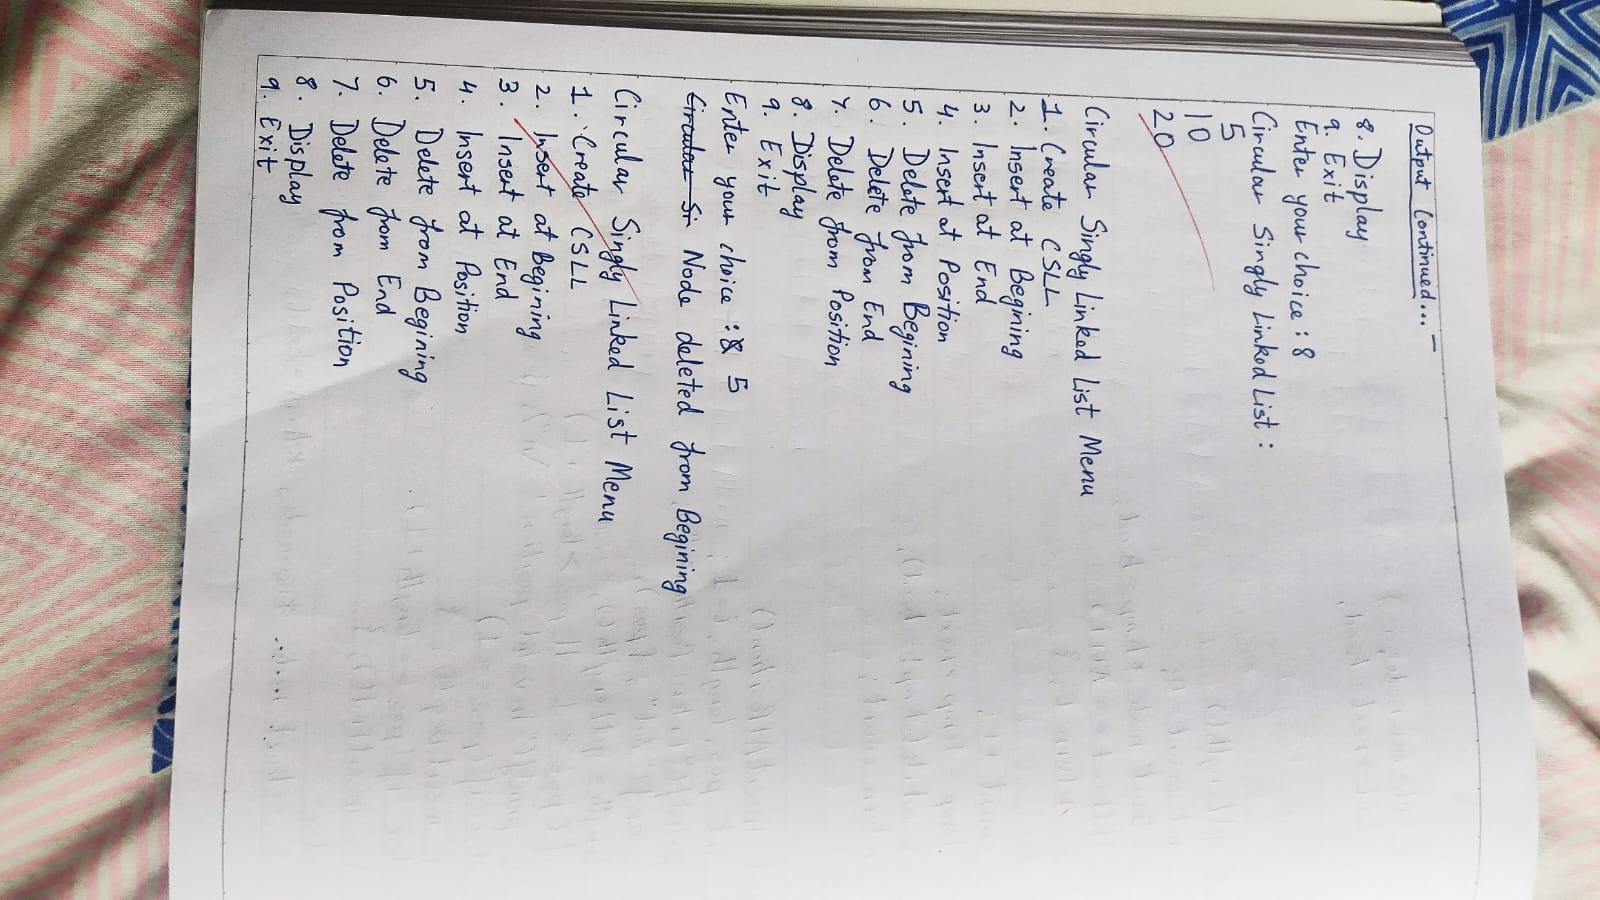 Output Continued... -
8. Display
9. Exit
Enter your choice : 8
Circular Singly Linked List :
5
10
20
Circular Singly Linked List Menu
1. Create CSLL
2. Insert at Begining
3. Insert at End
4. Insert at Position
5. Delete from Begining
6. Delete from End
7. Delete from Position
8. Display
9. Exit
Enter your choice : 5
Circular Si Node deleted from Begining
Circular Singly Linked List Menu
1. Create CSLL
2. Insert at Begining
3. Insert at End
4. Insert at Position
5. Delete from Begining
6. Delete from End
7. Delete from Position
8. Display
9. Exit